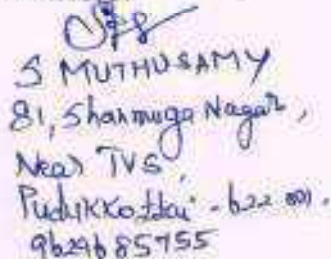 S MUTHUSAMY
81, Shanmuga Nagar,
Near TVS,
Pudukkottai - 622 001.
9629685755